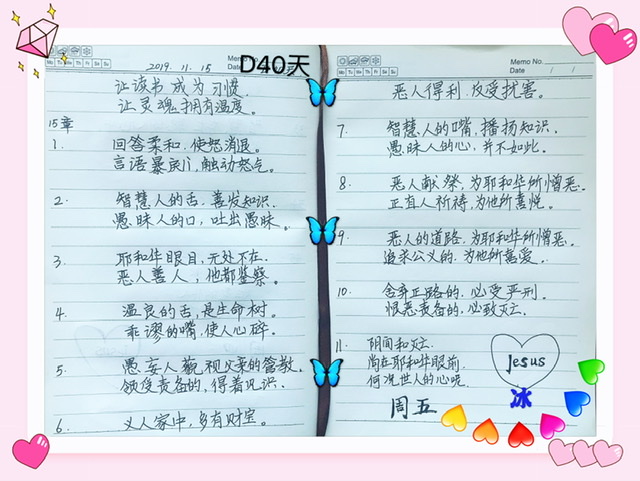 Memo
Mo Tu We Th Fr Sa Su
Date
2019.11.15
D40天
让读书成为习惯.
让灵魂拥有温度。
15章
1. 回答柔和,使怒消退。
言语暴戾,触动怒气。
2. 智慧人的舌,善发知识.
愚昧人的口,吐出愚昧.
3. 耶和华眼目,无处不在.
恶人善人,他都鉴察.
4. 温良的舌,是生命树.
乖谬的嘴,使人心碎.
5. 愚妄人藐视父亲的管教.
领受责备的,得着见识.
6. 义人家中,多有财宝。
Memo No.
Mo Tu We Th Fr Sa Su
Date / /
恶人得利,反受扰害。
7. 智慧人的嘴,播扬知识.
愚昧人的心,并不如此.
8. 恶人献祭,为耶和华所憎恶.
正直人祈祷,为他所喜悦.
9. 恶人的道路,为耶和华所憎恶.
追求公义的,为他所喜爱.
10. 舍弃正路的,必受严刑.
恨恶责备的,必致灭亡.
11. 阴间和灭亡
尚在耶和华眼前.
何况世人的心呢.
Jesus
冰
周五